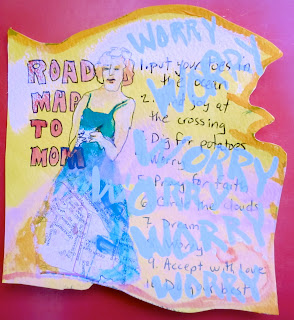 ROAD
MAP
TO
MOM
WORRY
1. put your toes in
the ocean
WORRY
2. Find joy at
the crossing
3. Dig for potatoes
WORRY
4. Worry
5. Pray for faith
6. Circle the clouds
7. Dream
WORRY
8. Worry
9. Accept with love
10. Do your best
WORRY